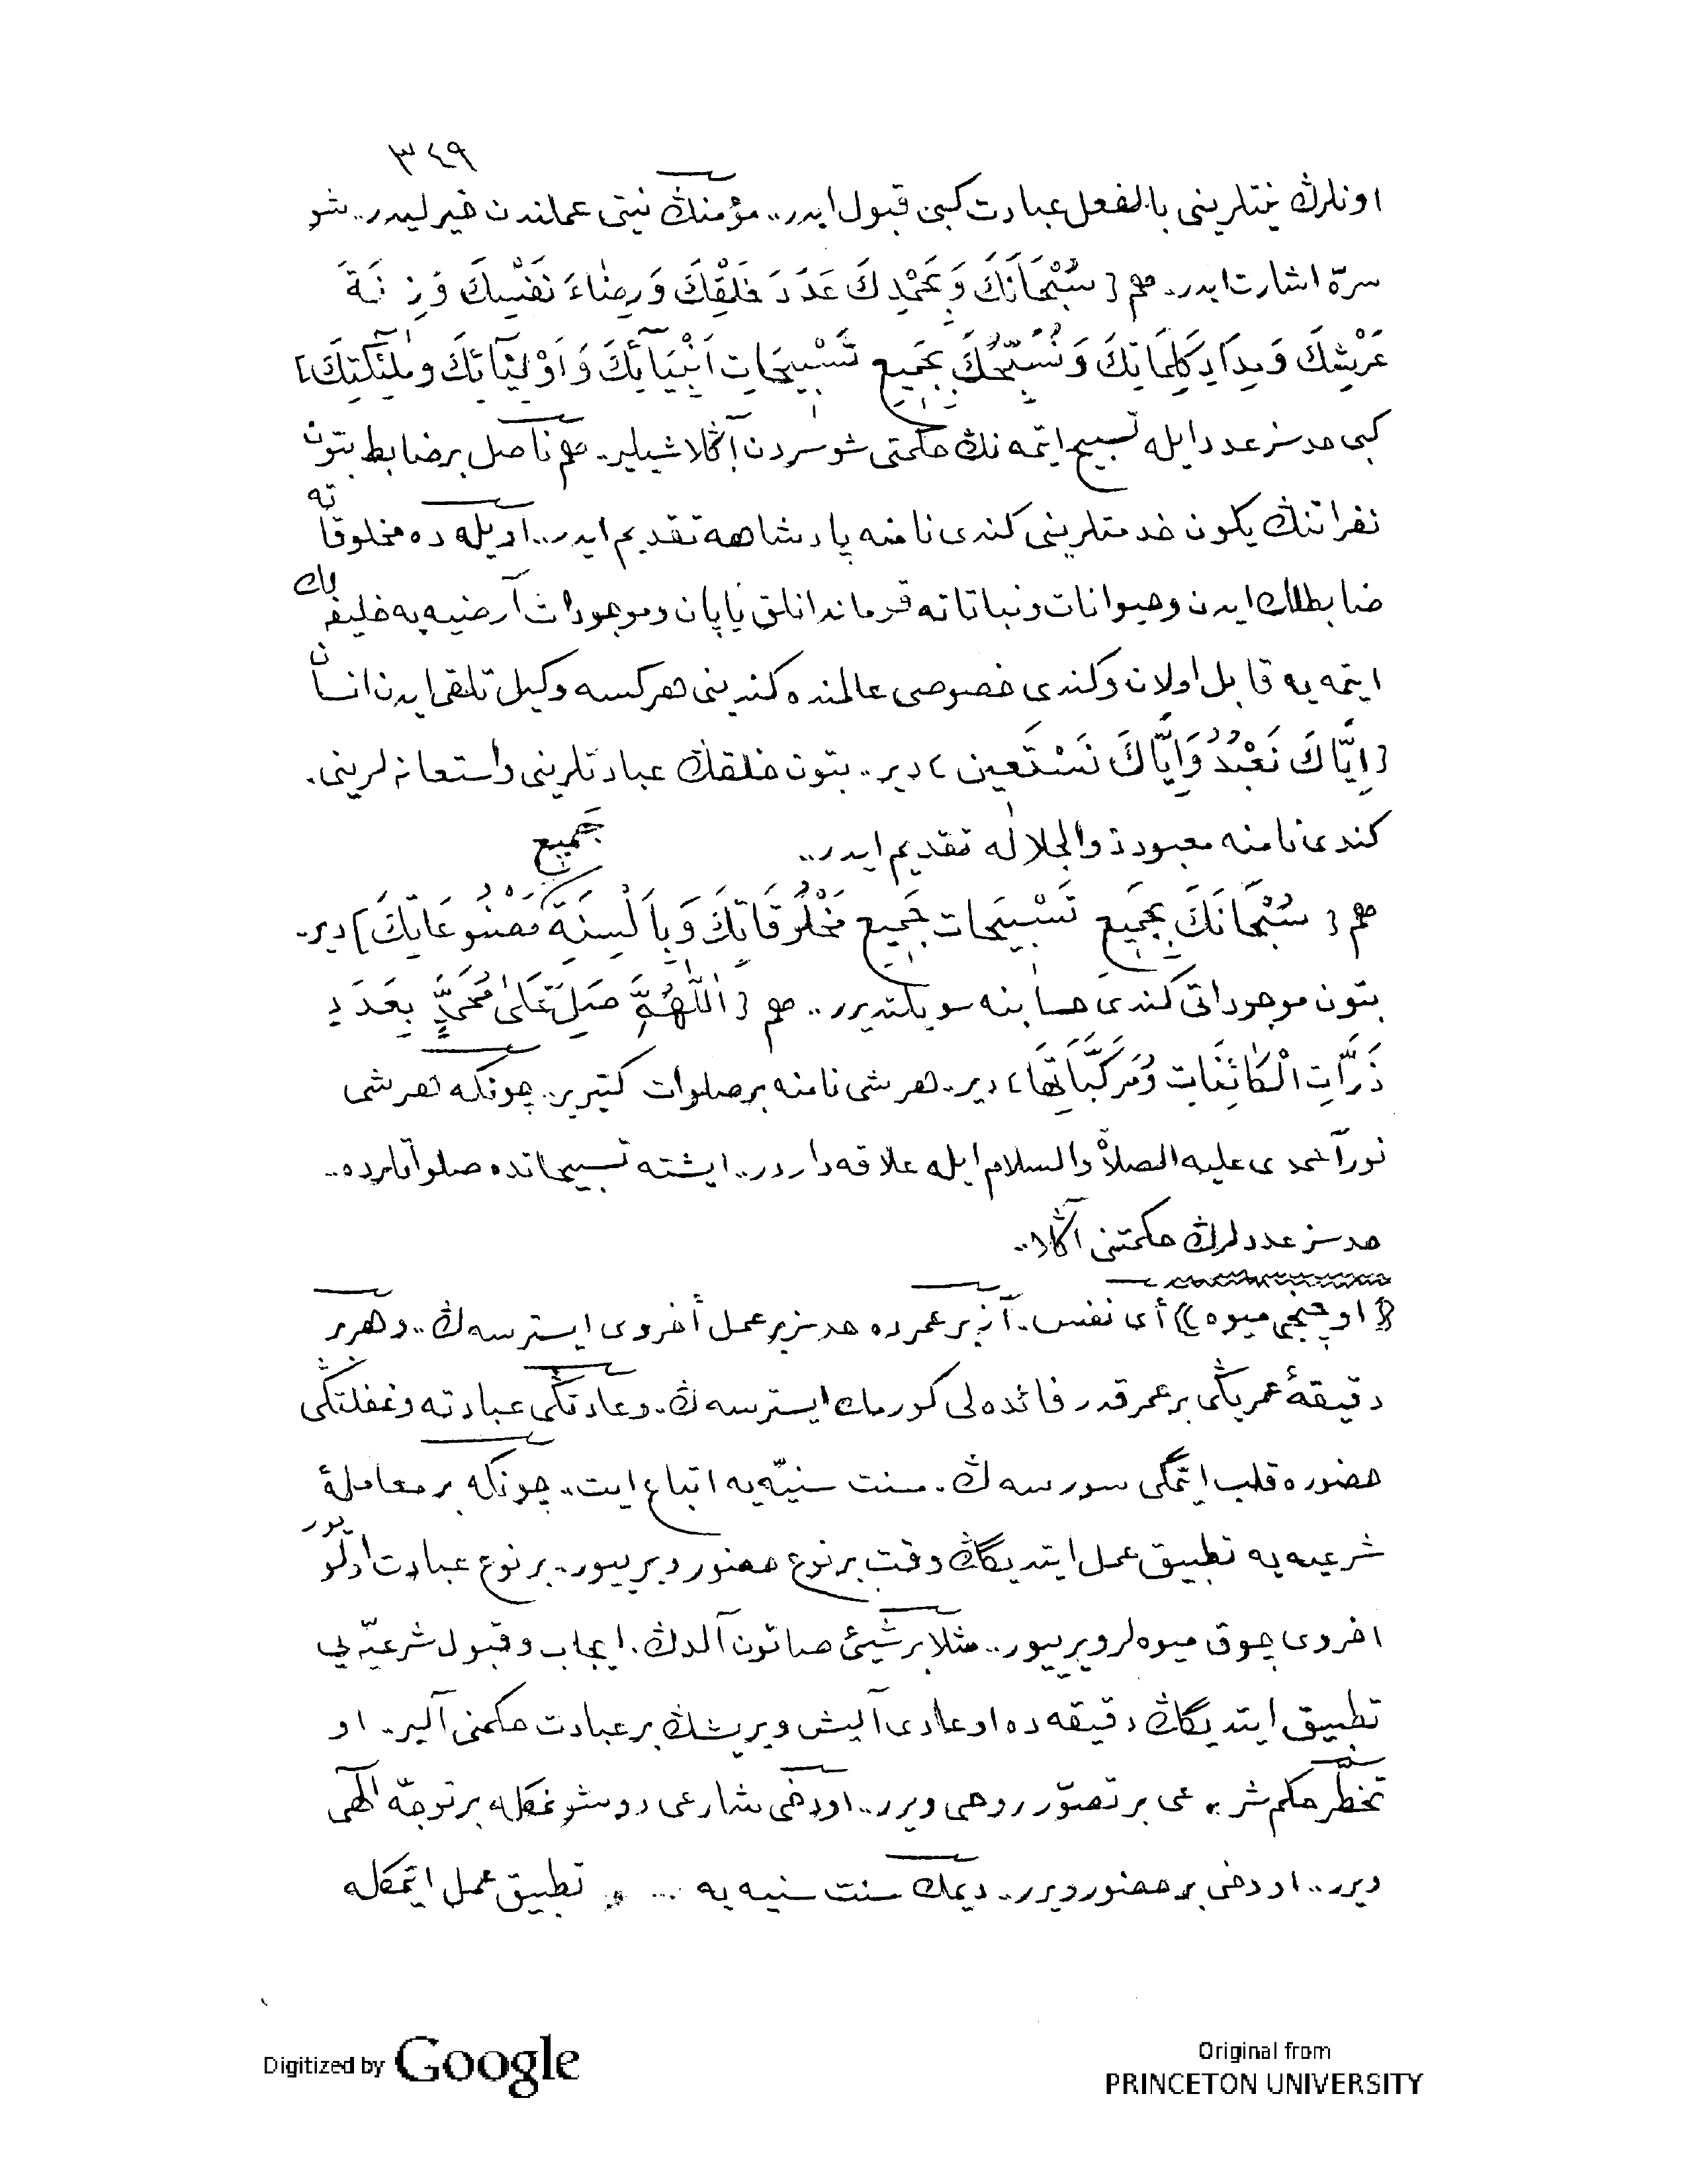 ٣٤٩
اونلرڭ نیتلرینی بالفعل عبادت كبی قبول ایدر.. مؤمنڭ نیتی عملندن خیرلیدر.. شو
سرّه اشارت ایدر. هم { سُبْحَانَكَ وَبِحَمْدِكَ عَدَدَ خَلْقِكَ وَرِضَاءَ نَفْسِكَ وَزِنَةَ
عَرْشِكَ وَمِدَادِ كَلِمَاتِكَ وَنُسَبِّحُكَ بِجَمِيعِ تَسْبِيحَاتِ اَنْبِيَآئِكَ وَاَوْلِيَآئِكَ وَمَلٰئِكَتِكَ }
كبی حدسز عدد ایله تسبیح ایتمه نڭ حكمتی شو سردن آڭلاشیلیر. هم ناصل بر ضابط بتون
نفراتنڭ یكون خدمتلرینی كندی نامنه پادشاهه تقدیم ایدر.. اویله ده مخلوقاته
ضابطلك ایدن وحیوانات ونباتاته قوماندانلق یاپان وموجودات أرضیه یه خلیفه لك
ایتمه یه قابل اولان وكندی خصوصی عالمنده كندینی هركسه وكیل تلقی ایدن انسان
{ اِيَّاكَ نَعْبُدُ وَاِيَّاكَ نَسْتَعِين } دیر.. بتون خلقڭ عبادتلرینی واستعانه لرینی.
كندی نامنه معبود ذوالجلاله تقدیم ایدر..
هم { سُبْحَانَكَ بِجَمِيعِ تَسْبِيحَاتِ جَمِيعِ مَخْلُوقَاتِكَ وَبِاَلْسِنَةِ جَمِيعِ مَصْنُوعَاتِكَ } دیر.
بتون موجوداتی كندی حسابنه سویلتدیرر.. هم { اَللّٰهُمَّ صَلِّ عَلٰى مُحَمَّدٍ بِعَدَدِ
ذَرَّاتِ الْكَائِنَاتِ وَمُرَكَّبَاتِهَا } دیر. هر شی نامنه بر صلوات كتیریر. چونكه هر شی
نور أحمدی علیه الصلاة والسلام ایله علاقه دار در.. ایشته تسبیحاتده صلواتلرده..
حدسز عددلرڭ حكمتنی آڭلا..
{{ اوچنجی میوه }} أی نفس. آز بر عمرده حدسز بر عمل أخروی ایسترسه ڭ.. وهر بر
دقیقهٔ عمریڭی بر عمر قدر فائده لی كورمك ایسترسه ڭ. وعادتڭی عبادته وغفلتڭی
حضوره قلب ایتمگی سورسه ڭ. سنت سنیّه یه اتباع ایت.. چونكه بر معاملهٔ
شرعیه یه تطبیق عمل ایتدیگڭ وقت بر نوع حضور ویرییور. بر نوع عبادت اولویور
اخروی چوق میوه لر ویرییور.. مثلا بر شیئ صاتون آلدڭ. ایجاب وقبول شرعیّه یی
تطبیق ایتدیگڭ دقیقه ده او عادی آلیش ویریشڭ بر عبادت حكمنی آلیر. او
تخطّر حكم شرعی بر تصوّر وحی ویرر.. او دخی شارعی دوشونمكله بر توجّه الٰهی
ویرر.. او دخی بر حضور ویرر. دیمك سنت سنیه یه تطبیق عمل ایتمكله
Digitized by Google
Original from
PRINCETON UNIVERSITY